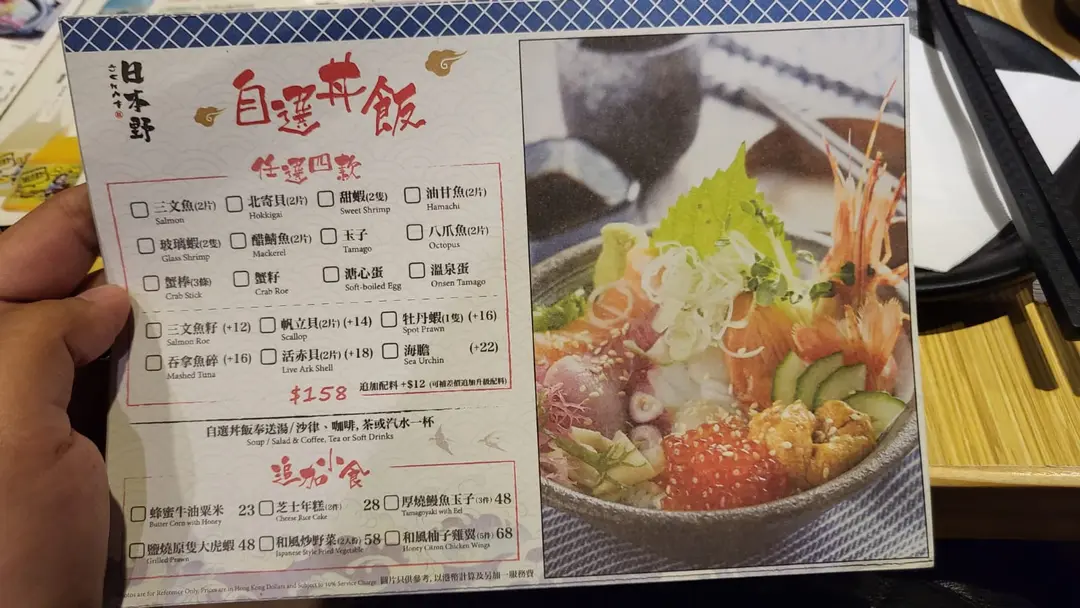 日本野
自選丼飯
任選四款
三文魚(2片) 北寄貝(2片) 甜蝦(2隻) 油甘魚(2片)
Salmon Hokkigai Sweet Shrimp Hamachi
玻璃蝦(2隻) 醋鯖魚(2片) 玉子 八爪魚(2片)
Glass Shrimp Mackerel Tamago Octopus
蟹棒(3條) 蟹籽 溏心蛋 溫泉蛋
Crab Stick Crab Roe Soft-boiled Egg Onsen Tamago
三文魚籽 (+12) 帆立貝(2片) (+14) 牡丹蝦(1隻) (+16)
Salmon Roe Scallop Spot Prawn
吞拿魚碎 (+16) 活赤貝(2片) (+18) 海膽 (+22)
Mashed Tuna Live Ark Shell Sea Urchin
$158 追加配料 +$12 (可補差價追加升級配料)
自選丼飯奉送湯/沙律、咖啡, 茶或汽水一杯
Soup / Salad & Coffee, Tea or Soft Drinks
追加小食
蜂蜜牛油粟米 23 芝士年糕(2件) 28 厚燒鰻魚玉子(3件) 48
Butter Corn with Honey Cheese Rice Cake Tamagoyaki with Eel
鹽燒原隻大虎蝦 48 和風炒野菜(2人份) 58 和風柚子雞翼(5件) 68
Grilled Prawn Japanese Style Fried Vegetable Honey Citron Chicken Wings
are for Reference Only, Prices are in Hong Kong Dollars and Subject to 10% Service Charge 圖片只供參考, 以港幣計算及另加一服務費